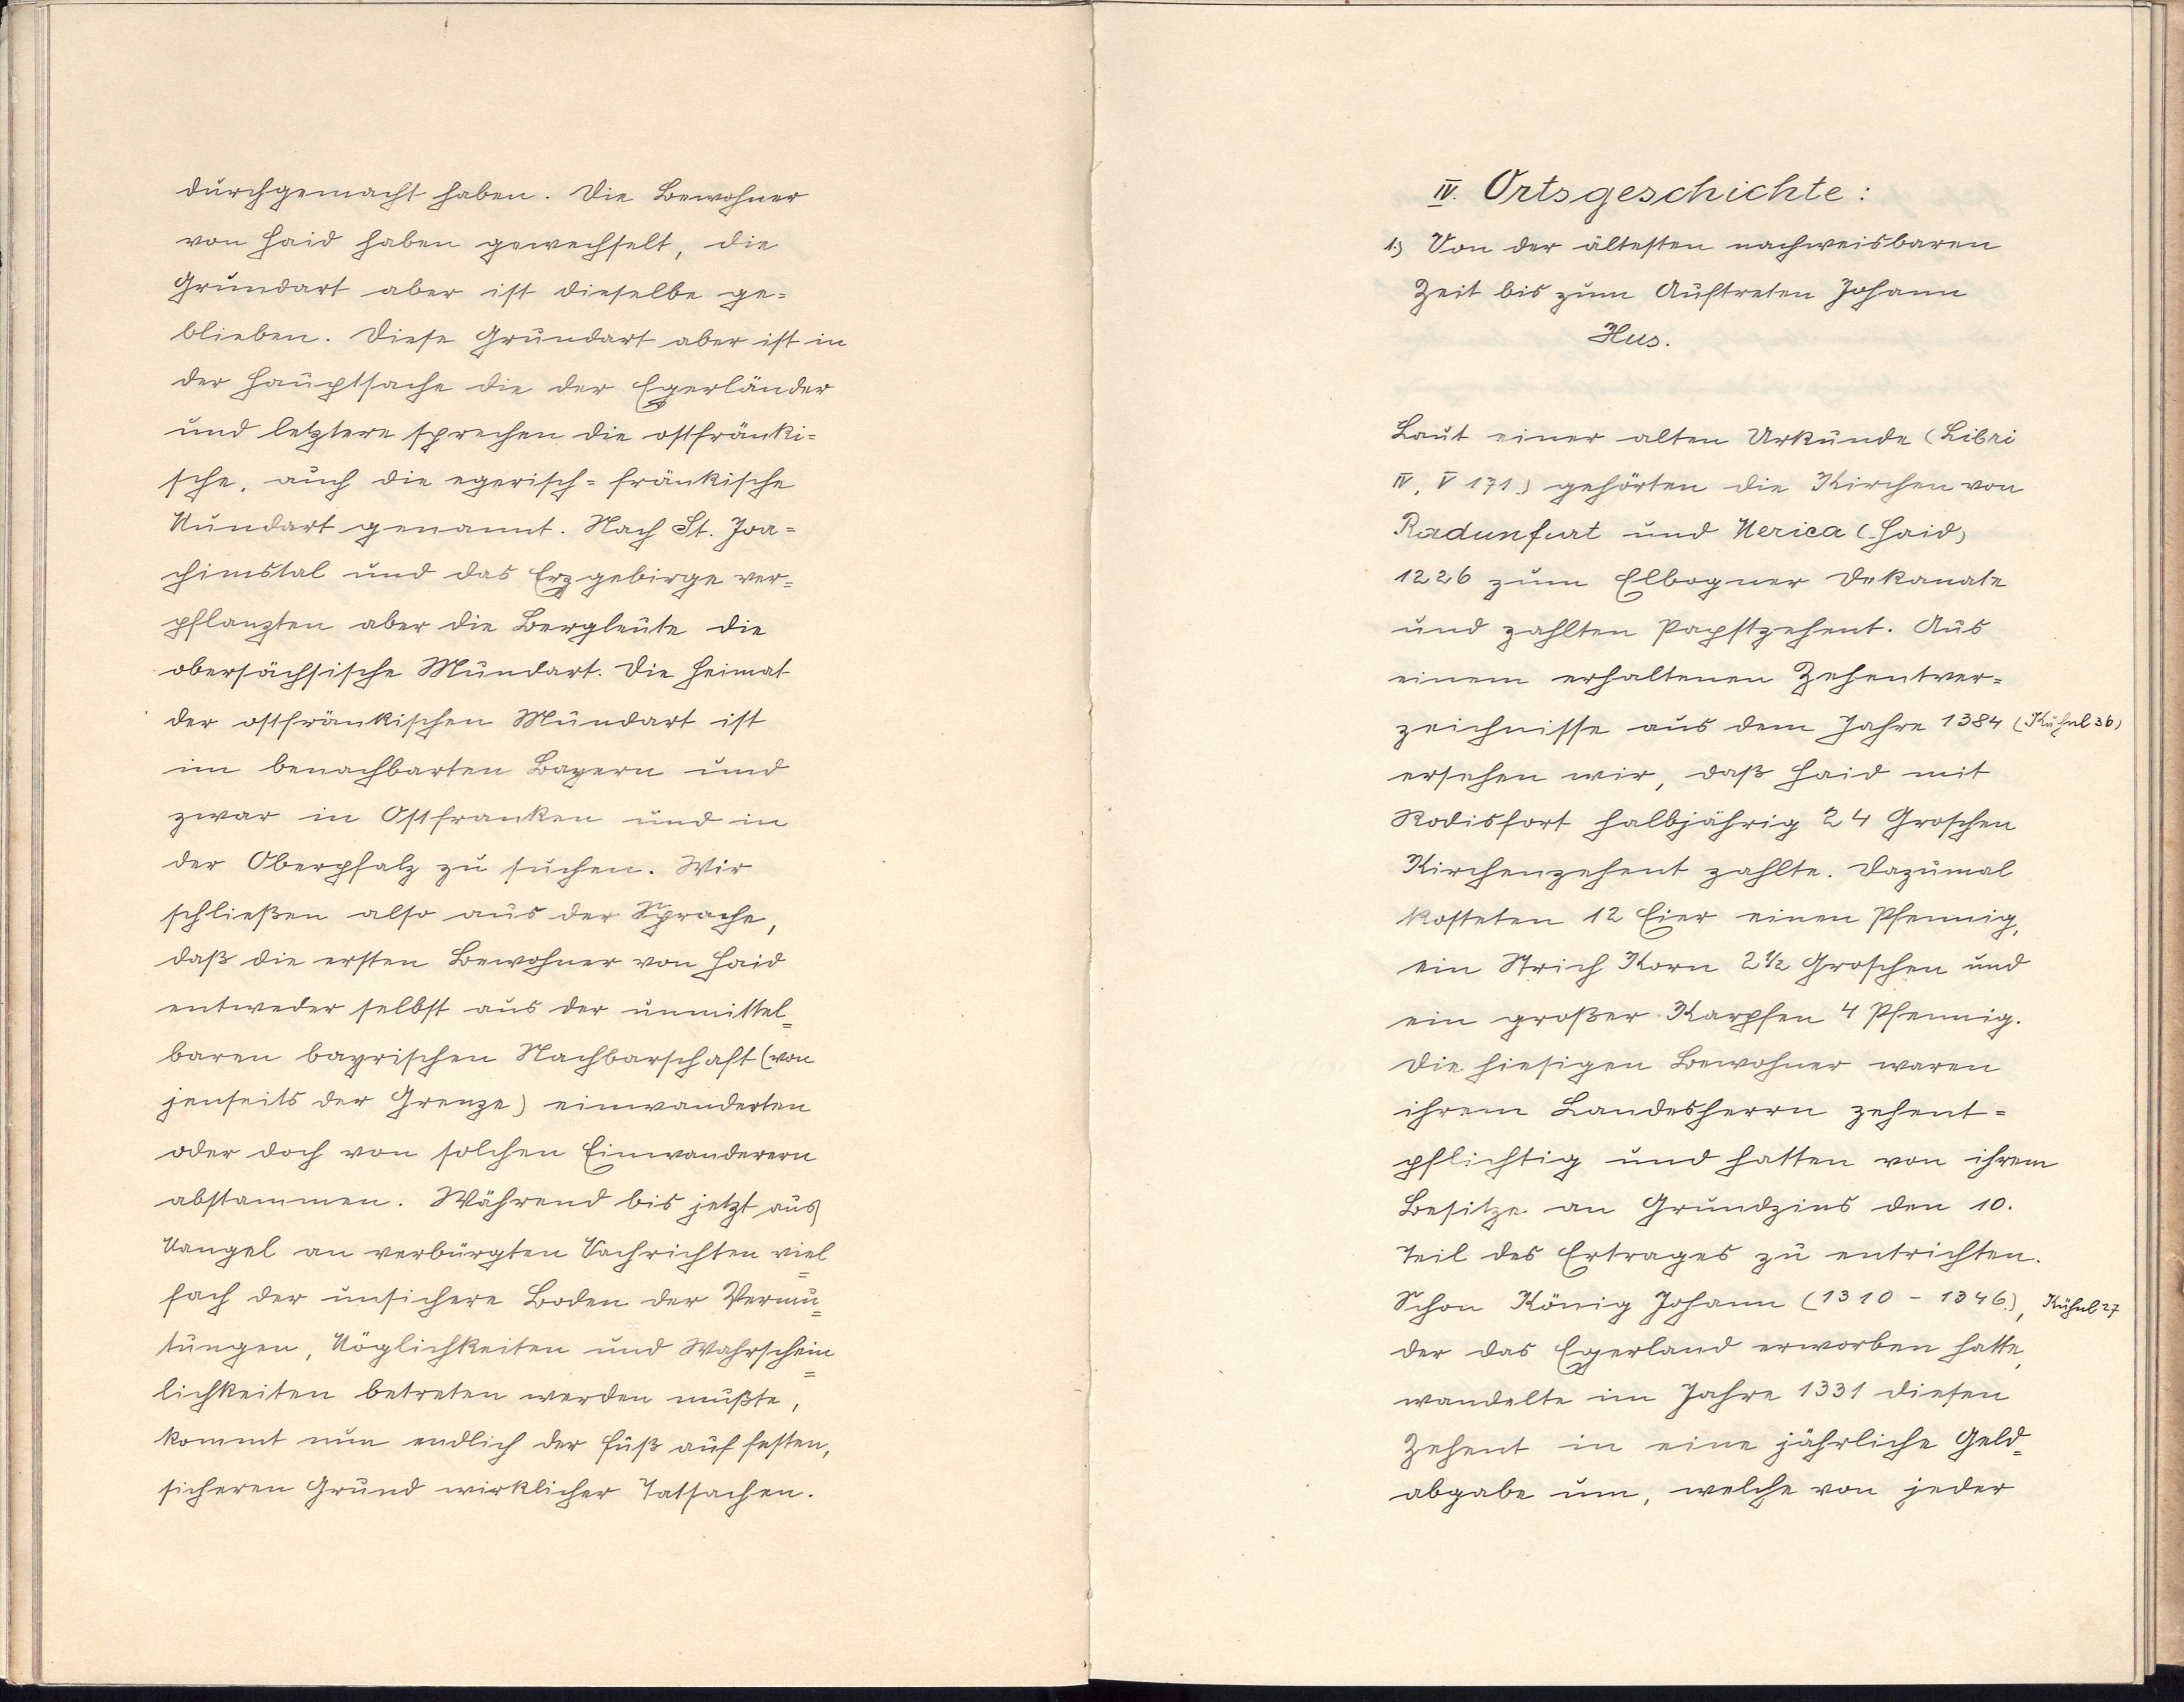 durchgemacht haben. Die Bewohner
von Haid haben gewechselt, die
Grundart aber ist dieselbe ge=
blieben. Diese Grundart aber ist in
der Hauptsache die der Egerländer
und letztere sprechen die ostfränki=
sche, auch die egerisch=fränkische
Mundart genannt. Nach St. Joa=
chimstal und das Erzgebirge ver=
pflanzten aber die Bergleute die
obersächsische Mundart. Die Heimat
der ostfränkischen Mundart ist
im benachbarten Bayern und
zwar in Ostfranken und in
der Oberpfalz zu suchen. Wir
schließen also aus der Sprache,
daß die ersten Bewohner von Haid
entweder selbst aus der unmittel=
baren bayrischen Nachbarschaft (von
jenseits der Grenze) einwanderten
oder doch von solchen Einwanderern
abstammen. Während bis jetzt aus
Mangel an verbürgten Nachrichten viel=
fach der unsichere Boden der Vermu=
tungen, Möglichkeiten und Wahrschein=
lichkeiten betreten werden mußte,
kommt nun endlich der Fuß auf festen,
sicheren Grund wirklicher Tatsachen.
IV. Ortsgeschichte:
1.) Von der ältesten nachweisbaren
Zeit bis zum Auftreten Johann
Hus.
Laut einer alten Urkunde (Libri
IV, V 171) gehörten die Kirchen von
Radunfurt und Merica (Haid)
1226 zum Elbogner Dekanate
und zahlten Papstzehent. Aus
einem erhaltenen Zehentver=
zeichnisse aus dem Jahre 1384 (Kühnl 36)
ersehen wir, daß Haid mit
Rodisfort halbjährig 24 Groschen
Kirchenzehent zahlte. Dazumal
kosteten 12 Eier einen Pfennig,
ein Strich Korn 2½ Groschen und
ein großer Karpfen 4 Pfennig.
Die hiesigen Bewohner waren
ihrem Landesherrn zehent=
pflichtig und hatten von ihrem
Besitze an Grundzins den 10.
Teil des Ertrages zu entrichten.
Schon König Johann (1310 - 1346), Kühnl 27
der das Egerland erworben hatte,
wandelte im Jahre 1331 diesen
Zehent in eine jährliche Geld=
abgabe um, welche von jeder